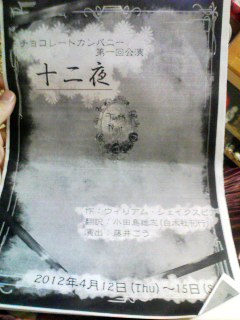 チョコレートカンパニー
第一回公演
十二夜
作：ウィリアム シェイクスピ
翻訳：小田島雄志(白水社刊行
演出：藤井ごう
2012年4月12日(Thu)～15日(S